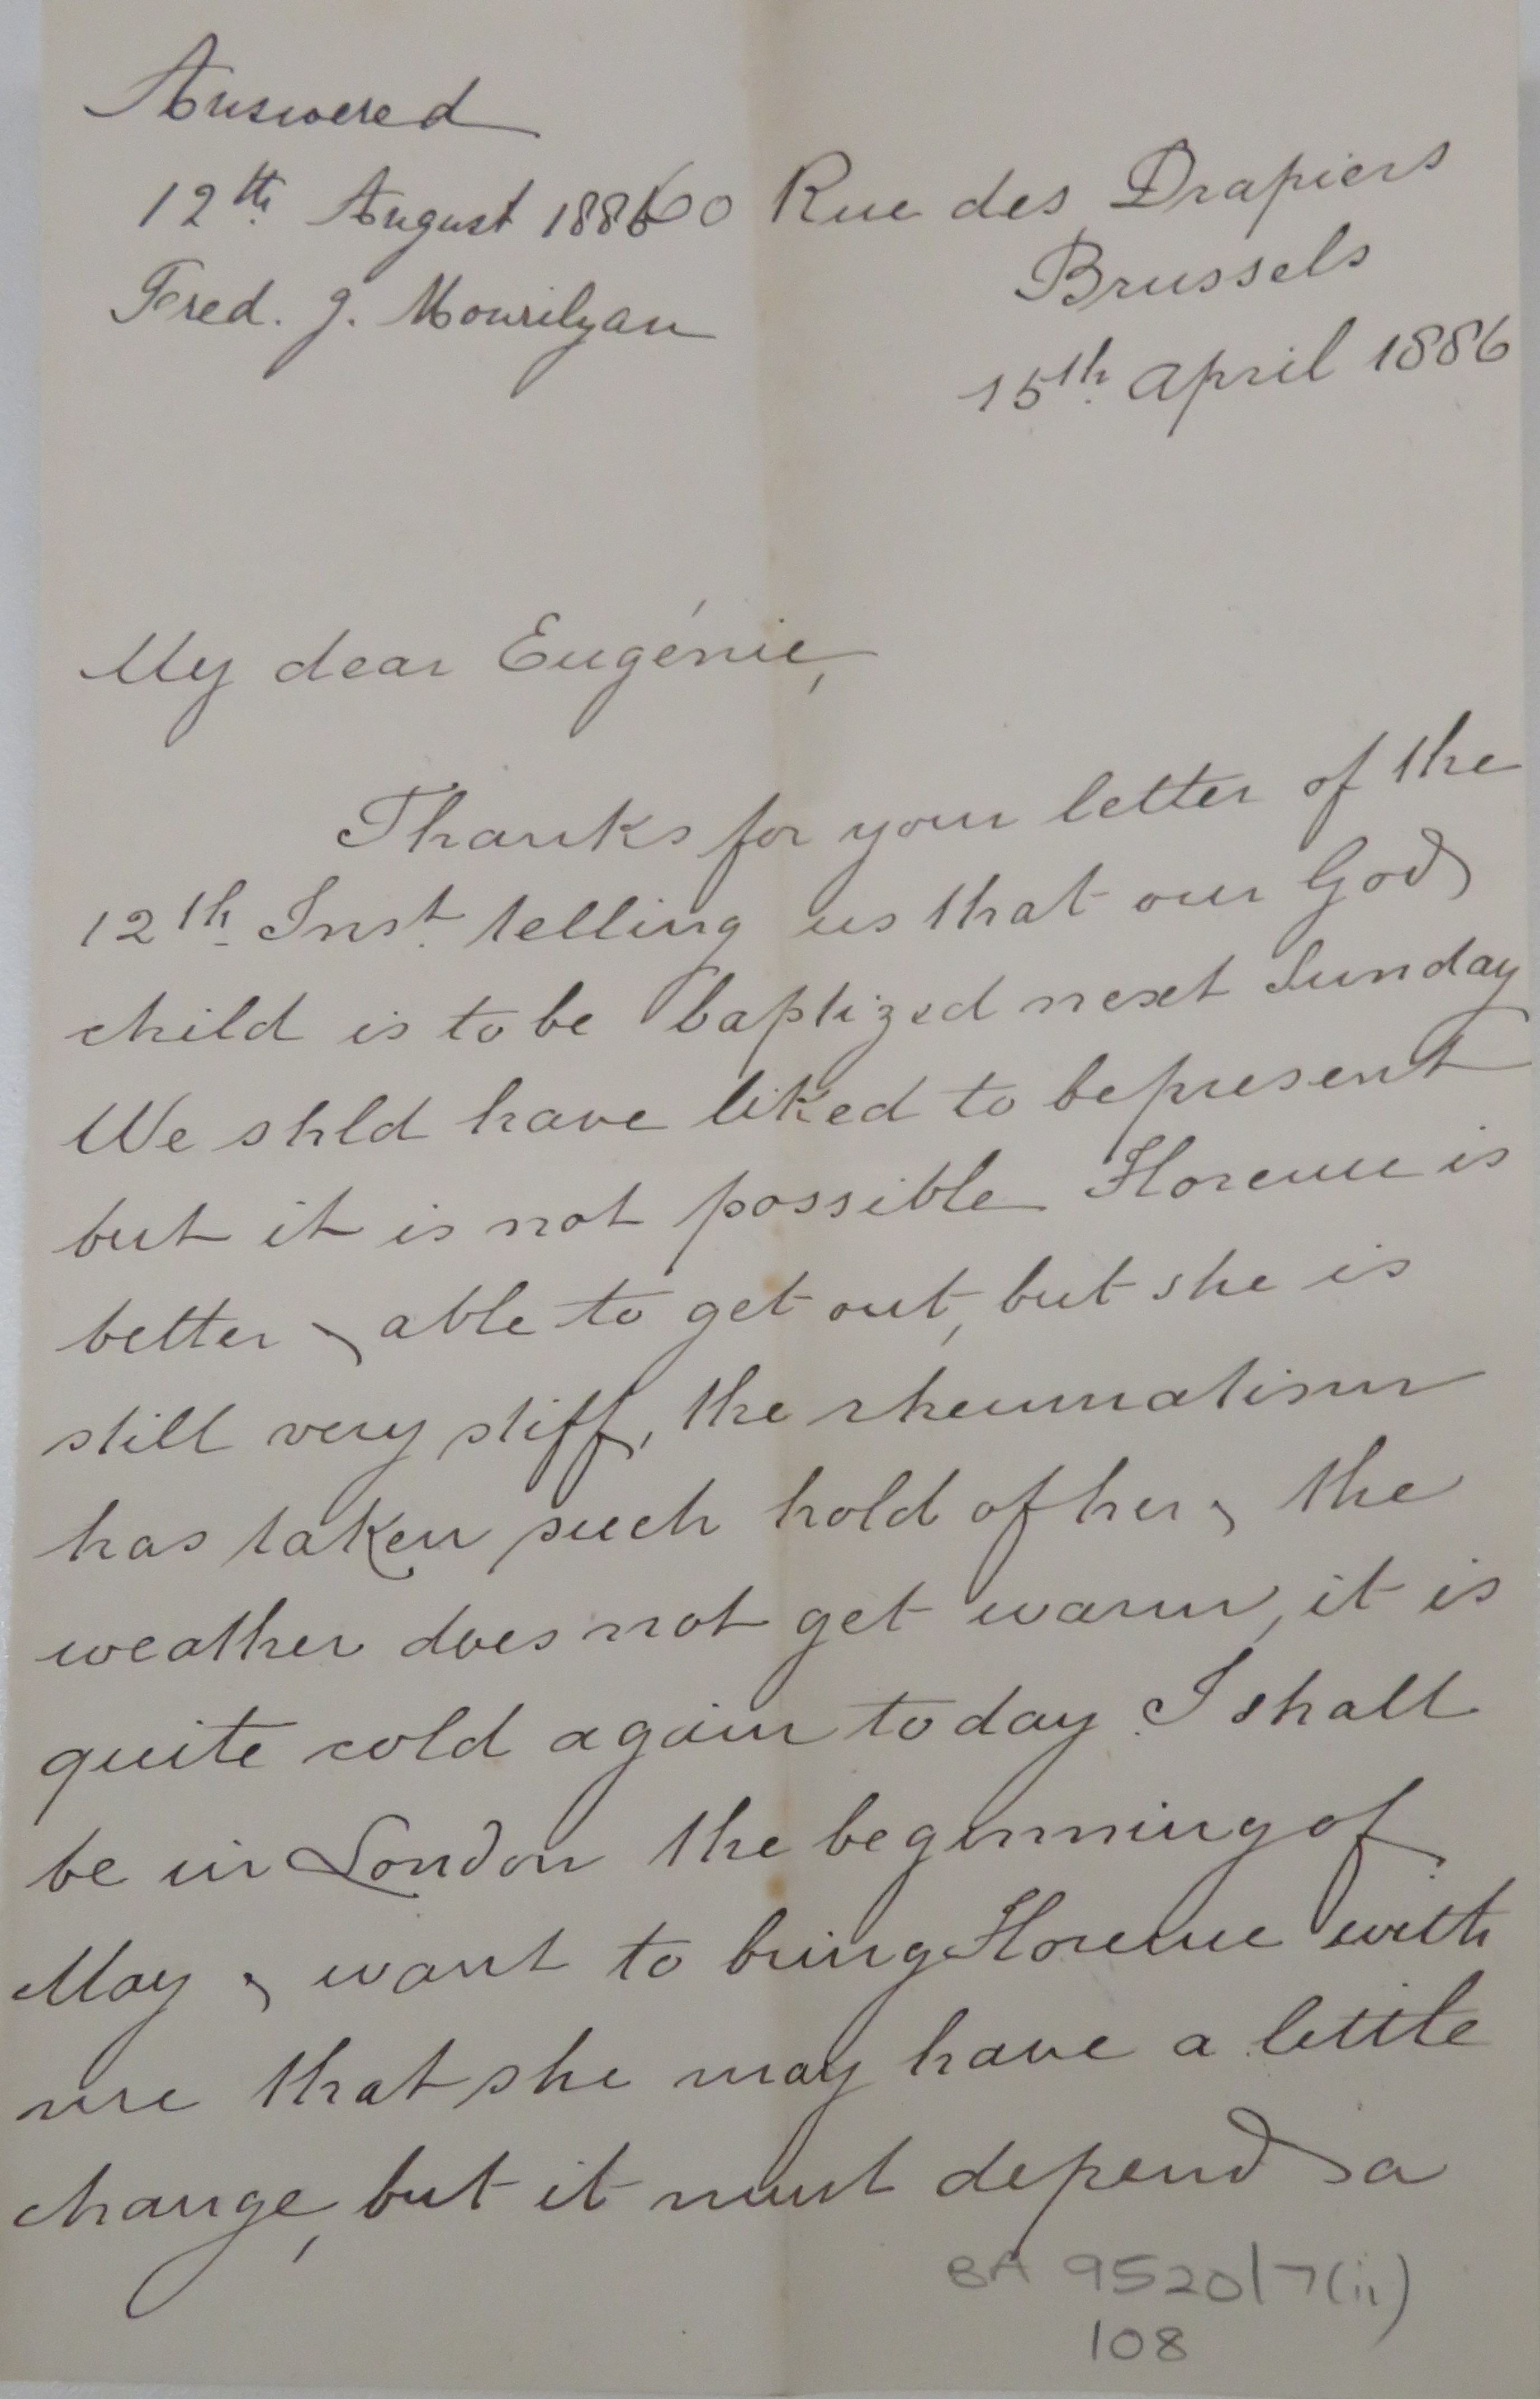 Answered
12th. August 1886
Fred. J. Mourilyan
60 Rue des Drapiers
Brussels
15th. April 1886
My dear Eugénie,
Thanks for your letter of the
12th. Inst. telling us that our God
child is to be baptized next Sunday
We shld have liked to be present
but it is not possible Florence is
better & able to get out, but she is
still very stiff, the rheumatism
has taken such hold of her & the
weather does not get warm, it is
quite cold again today. I shall
be in London the beginning of
May & want to bring Florence with
me that she may have a little
change, but it must depend a
BA 9520/7(ii)
108